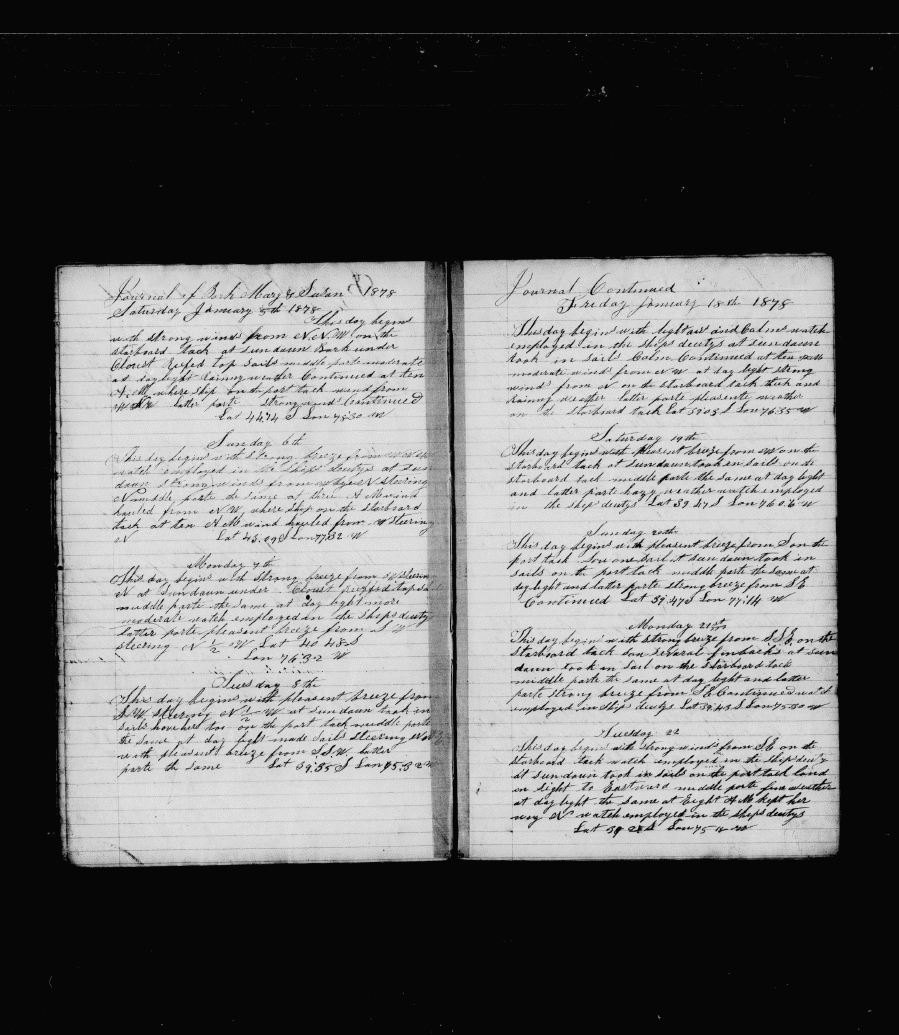 Journal of Bark Mary & Susan 1878
Saturday January 5th 1878
This day begins
with strong winds from N.N.W on the
starboard tack at sundaun Bark under
Cloust Reefed top sails middle parte moderate
at daylight Raining weader Continued at ten
A.M. where ship on the port tack wind from
latter parte strong wind Continued
Lat 44.14 S Lon 78.30 W
Sunday 6th
This day begins with strong breeze from
watch employed in the ships deutys at sun
daun strong winds from steering
N middle parte the same at three A M wind
hauled from N W, where ship on the starboard
tack at ten A M wind hauled from W steering
N Lat 43.09 S Lon 77.32 W
Monday 7th
This day begins with strong breeze from steering
N at sundaun under Cloust reefed topsails
middle parte the same at day light more
moderate watch employed in the ships deuty
latter parte pleasent breeze from S
steering N 1/2 W Lat 40.48 S
Lon 76.32 W
Tuesday 8th
This day begins with pleasent breeze from
S.W. steering N 1/2 W at sundaun took in
sails on the port tack middle parte
the same at day light made sails steering
with pleasent breeze from S.S.W. latter
parte the same Lat 39.35 S Lon 75.32 W
Journal Continued
Fireday January 18th 1878
This day begin with light air and Calm watch
employed in the ship deutys at sundaun
took in sails Calm Continued at ten
moderate wind from N W at day light strong
winds from N on the starboard tack thick and
raining weather latter parte pleasente weather
on the starboard tack Lat 39.03 S Lon 76.35 W
Saturday 19th
This day begins with pleasent breeze from W on the
starboard tack at sundaun took in sails on de
starboard tack middle parte the same at day light
and latter part hazy weather watch employed
in the ship deutys Lat 39.47 S Lon 76.06 W
Sunday 20th
This day begin with pleasent breeze from S on the
port tack son one sail at sundaun took in
sails on the port tack middle parte the same at
day light and latter parte strong breeze from S E
Continued Lat 39.47 S Lon 77.14 W
Monday 21st
This day begin with strong breeze from S S E on the
starboard tack son several finbacks at sun
daun took in sail on the starboard tack
middle parte the same at day light and latter
parte strong breeze from S E Continued
employed in ship deutys Lat 39.43 S Lon 75.30 W
Tuesday 22
This day begins with strong winds from S E on the
starboard tack watch employed in the ship deuty
at sundaun took in sails on the port tack land
in sight to Eastward middle parte fine weather
at day light the same at Eight A M kept her
way N watch employed in the ships deutys
Lat 39.28 S Lon 75.11 W